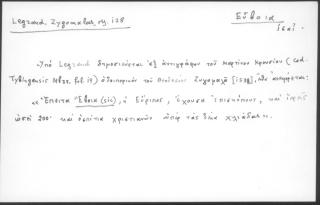 Legrand, Zygomalas, σ. 128
Εὔβοια
Ὑπὸ Legrand δημοσιεύεται ἐξ ἀντιγράφου τοῦ Μαρτίνου Κρουσίου (cod.
Tybingensis Mb 37, fol. ) ὁδοιπορικὸν τοῦ Θεοδοσίου Ζυγομαλᾶ [15 ], ὅθεν ἀναφέρεται:
« Ἔπειτα Ἔβοια (sic), ἡ Εὔριπος, ἔχουσα ἐπισκόπους, καὶ
ὡσεὶ 200 καὶ ὁσπίτια χριστιανῶν ὑπὲρ τὰς δύο χιλιάδας ».